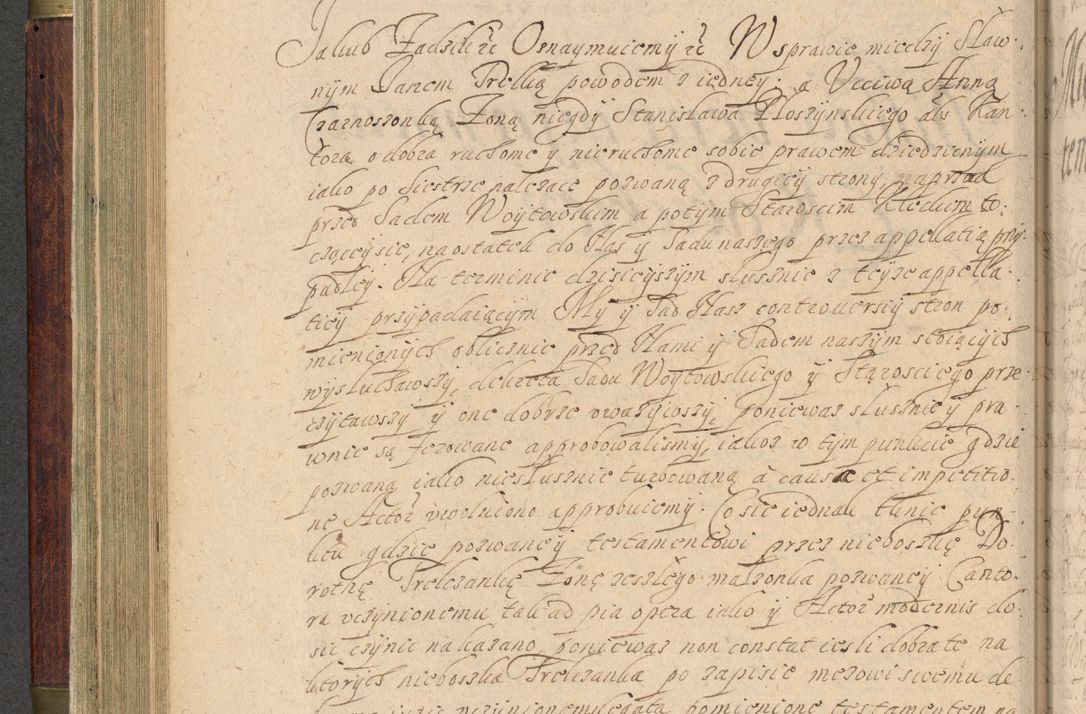 Jakub Zadzik etc Oznaymuiemy iż W sprawie miedzy Sław-
nym Janem Trelką powodem z iedney, a Vcciwą Anną
Czarnoszonką Zoną niegdy Stanisława Kloszynskiego als Kan-
tora, o dobra ruchome y nieruchome sobie prawem dziedzicznym
iako po Siestrze należące pozwaną z drugiey strony, naprzod
przed Sądem Woytowskim a potym Staroscim Kieckim to-
czącey sie, naostatek do Nas y Sadu naszego przez appellatią przy-
padłey. Na terminie dzisieyszym słusznie z teyze appella-
tiey przypadaiącym My y Sąd Nasz controuersiy stron po-
mienionych oblicznie przed Nami y Sądem naszym stoiących
wysłuchawszy, dekreta Sądu Woytowskiego y Stąrosciego prze
czytawszy y one dobrze vważywszy, ponieważ słusznie y pra-
wnie są ferowane approbowalismy, iakoż w tym punkcie gdzie
pozwaną iako niesłusznie turbowaną à causa et impetitio-
ne Actor vwolniono approbuiemy. Co sie iednak tknie pun-
ktu gdzie pozwaney testamentowi przez nieboszkę Do-
rothę Trelczankę Zonę zeszłego małzonka pozwaney Canto-
ra vczynionemu tak ad pia opera iako y Actor modernis do-
sic czynic nakazano, ponieważ non constat iesli dobra te na
ktorych nieboszka Trelczanka po zapisie mezowi swemu de